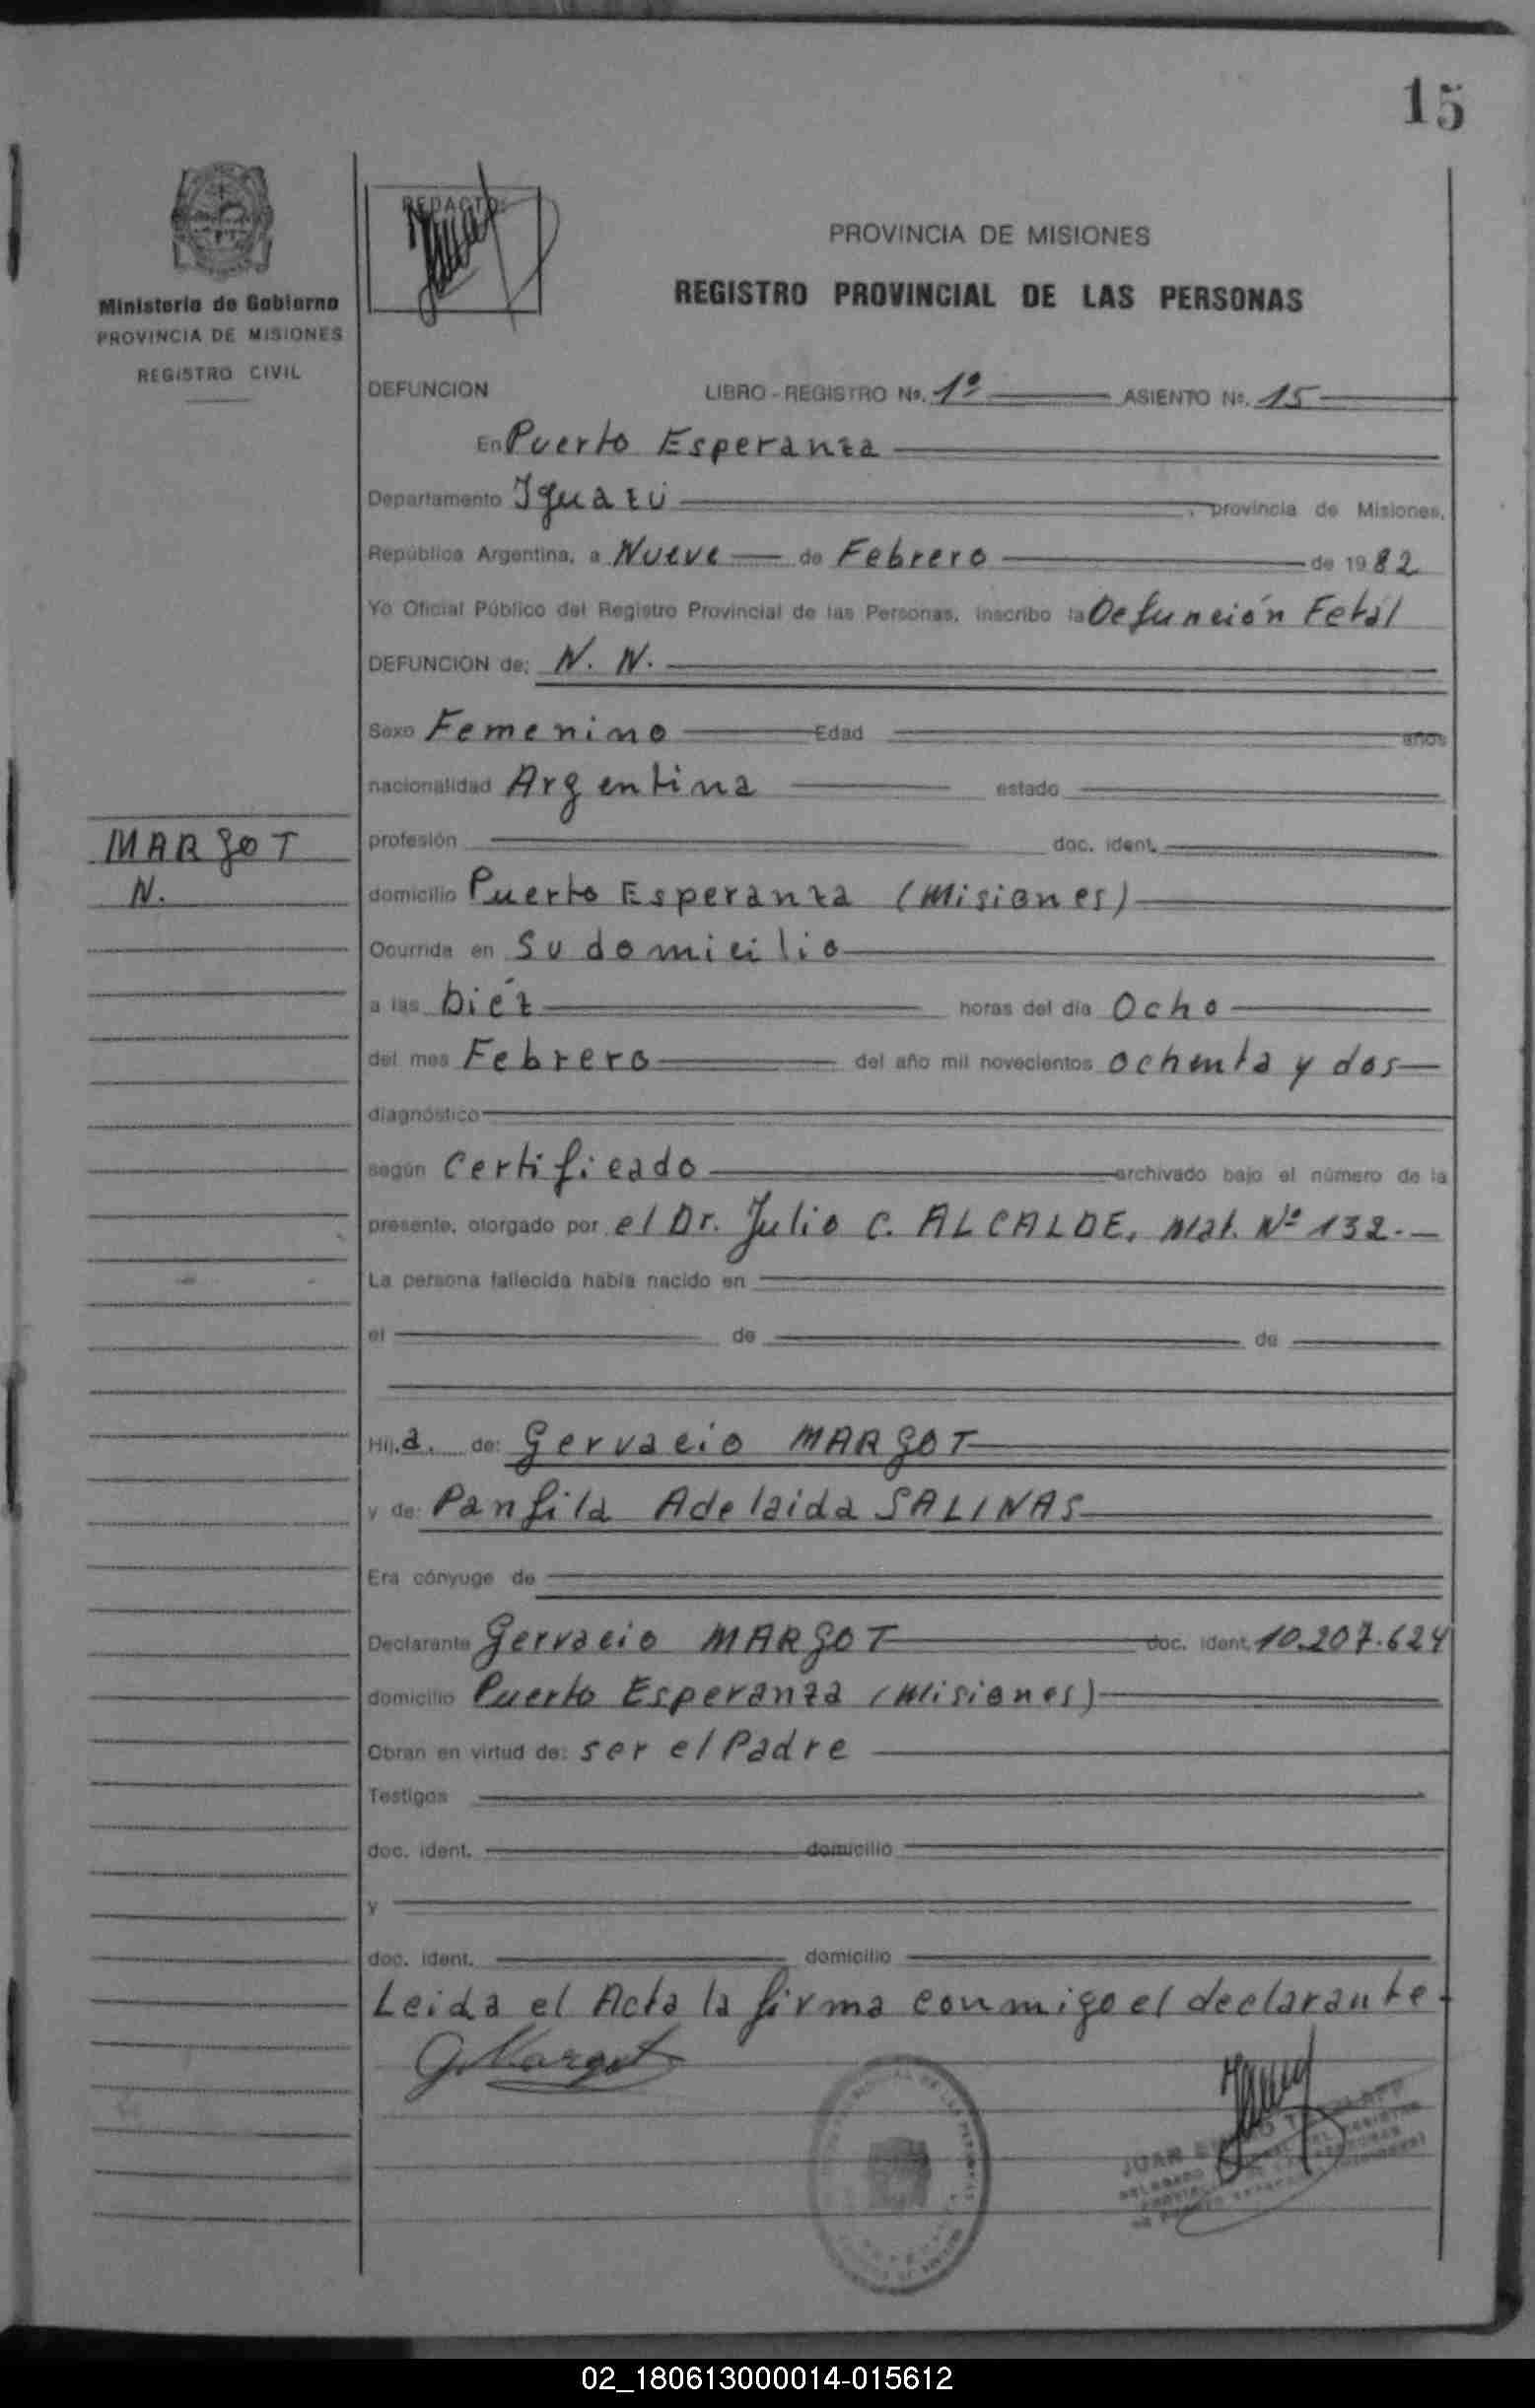 15
REDACTO:
Ministerio de Gobierno
PROVINCIA DE MISIONES
REGISTRO CIVIL
PROVINCIA DE MISIONES
REGISTRO PROVINCIAL DE LAS PERSONAS
DEFUNCION LIBRO - REGISTRO No. 1º ASIENTO No. 15
En Puerto Esperanza
Departamento Iguazú, provincia de Misiones,
República Argentina, a Nueve de Febrero de 1982
Yo Oficial Público del Registro Provincial de las Personas, inscribo la Defunción Fetal
DEFUNCION de: N. N.
Sexo Femenino Edad años
nacionalidad Argentina estado
MARGOT
N.
profesión doc. ident.
domicilio Puerto Esperanza (Misiones)
Ocurrida en Su domicilio
a las Diéz horas del día Ocho
del mes Febrero del año mil novecientos ochenta y dos
diagnóstico
según Certificado archivado bajo el número de la
presente, otorgado por el Dr. Julio C. ALCALDE, Mat. Nº 132.-
La persona fallecida había nacido en
el de de
Hij.a. de: Gervacio MARGOT
y de: Panfila Adelaida SALINAS
Era cónyuge de
Declarante Gervacio MARGOT doc. ident. 10.207.624
domicilio Puerto Esperanza (Misiones)
Obran en virtud de: ser el Padre
Testigos
doc. ident. domicilio
y
doc. ident. domicilio
Leida el Acta la firma conmigo el declarante.
G. Margot
JUAN
02_180613000014-015612